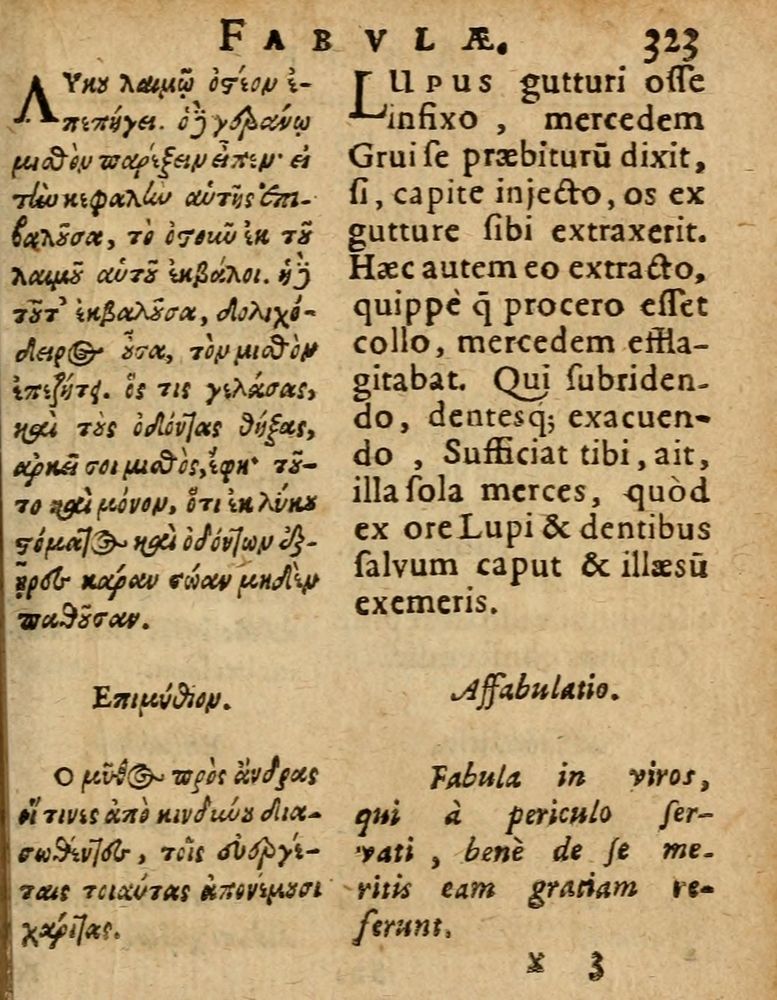 FABVLÆ. 323
ΛΥκου λαιμῷ ὀστέον ἐ-
πεπήγει. ὁ δὲ γεράνῳ
μισθὸν παρέξειν εἶπεν· εἰ
τὴν κεφαλὴν αὐτῆς ἐπι-
βαλοῦσα, τὸ ὀστοῦν ἐκ τοῦ
λαιμοῦ αὐτοῦ ἐκβάλοι. ἡ δὲ
τοῦτ' ἐκβαλοῦσα, δολιχό-
δειρος οὖσα, τὸν μισθὸν
ἐπεζήτει. ὅς τις γελάσας,
καὶ τοὺς ὀδόντας θήξας,
ἀρκεῖ σοι μισθὸς, ἔφη· τοῦ-
το καὶ μόνον, ὅτι ἐκ λύκου
στόματος καὶ ὀδόντων ἐξ-
ῇρες κάραν σώαν μηδὲν
παθοῦσαν.
Επιμύθιον.
Ο μῦθος πρὸς ἄνδρας
οἵ τινες ἀπὸ κινδύνου δια-
σωθέντες, τοῖς εὐεργέ-
ταις τοιαύτας ἀπονέμουσι
χάριτας.
LUPUS gutturi osse
infixo, mercedem
Grui se præbiturū dixit,
si, capite injecto, os ex
gutture sibi extraxerit.
Hæc autem eo extracto,
quippè q̄ procero esset
collo, mercedem effla-
gitabat. Qui subriden-
do, dentesq; exacuen-
do, Sufficiat tibi, ait,
illa sola merces, quòd
ex ore Lupi & dentibus
salvum caput & illæsū
exemeris.
Affabulatio.
Fabula in viros,
qui à periculo ser-
vati, benè de se me-
ritis eam gratiam re-
ferunt.
x 3